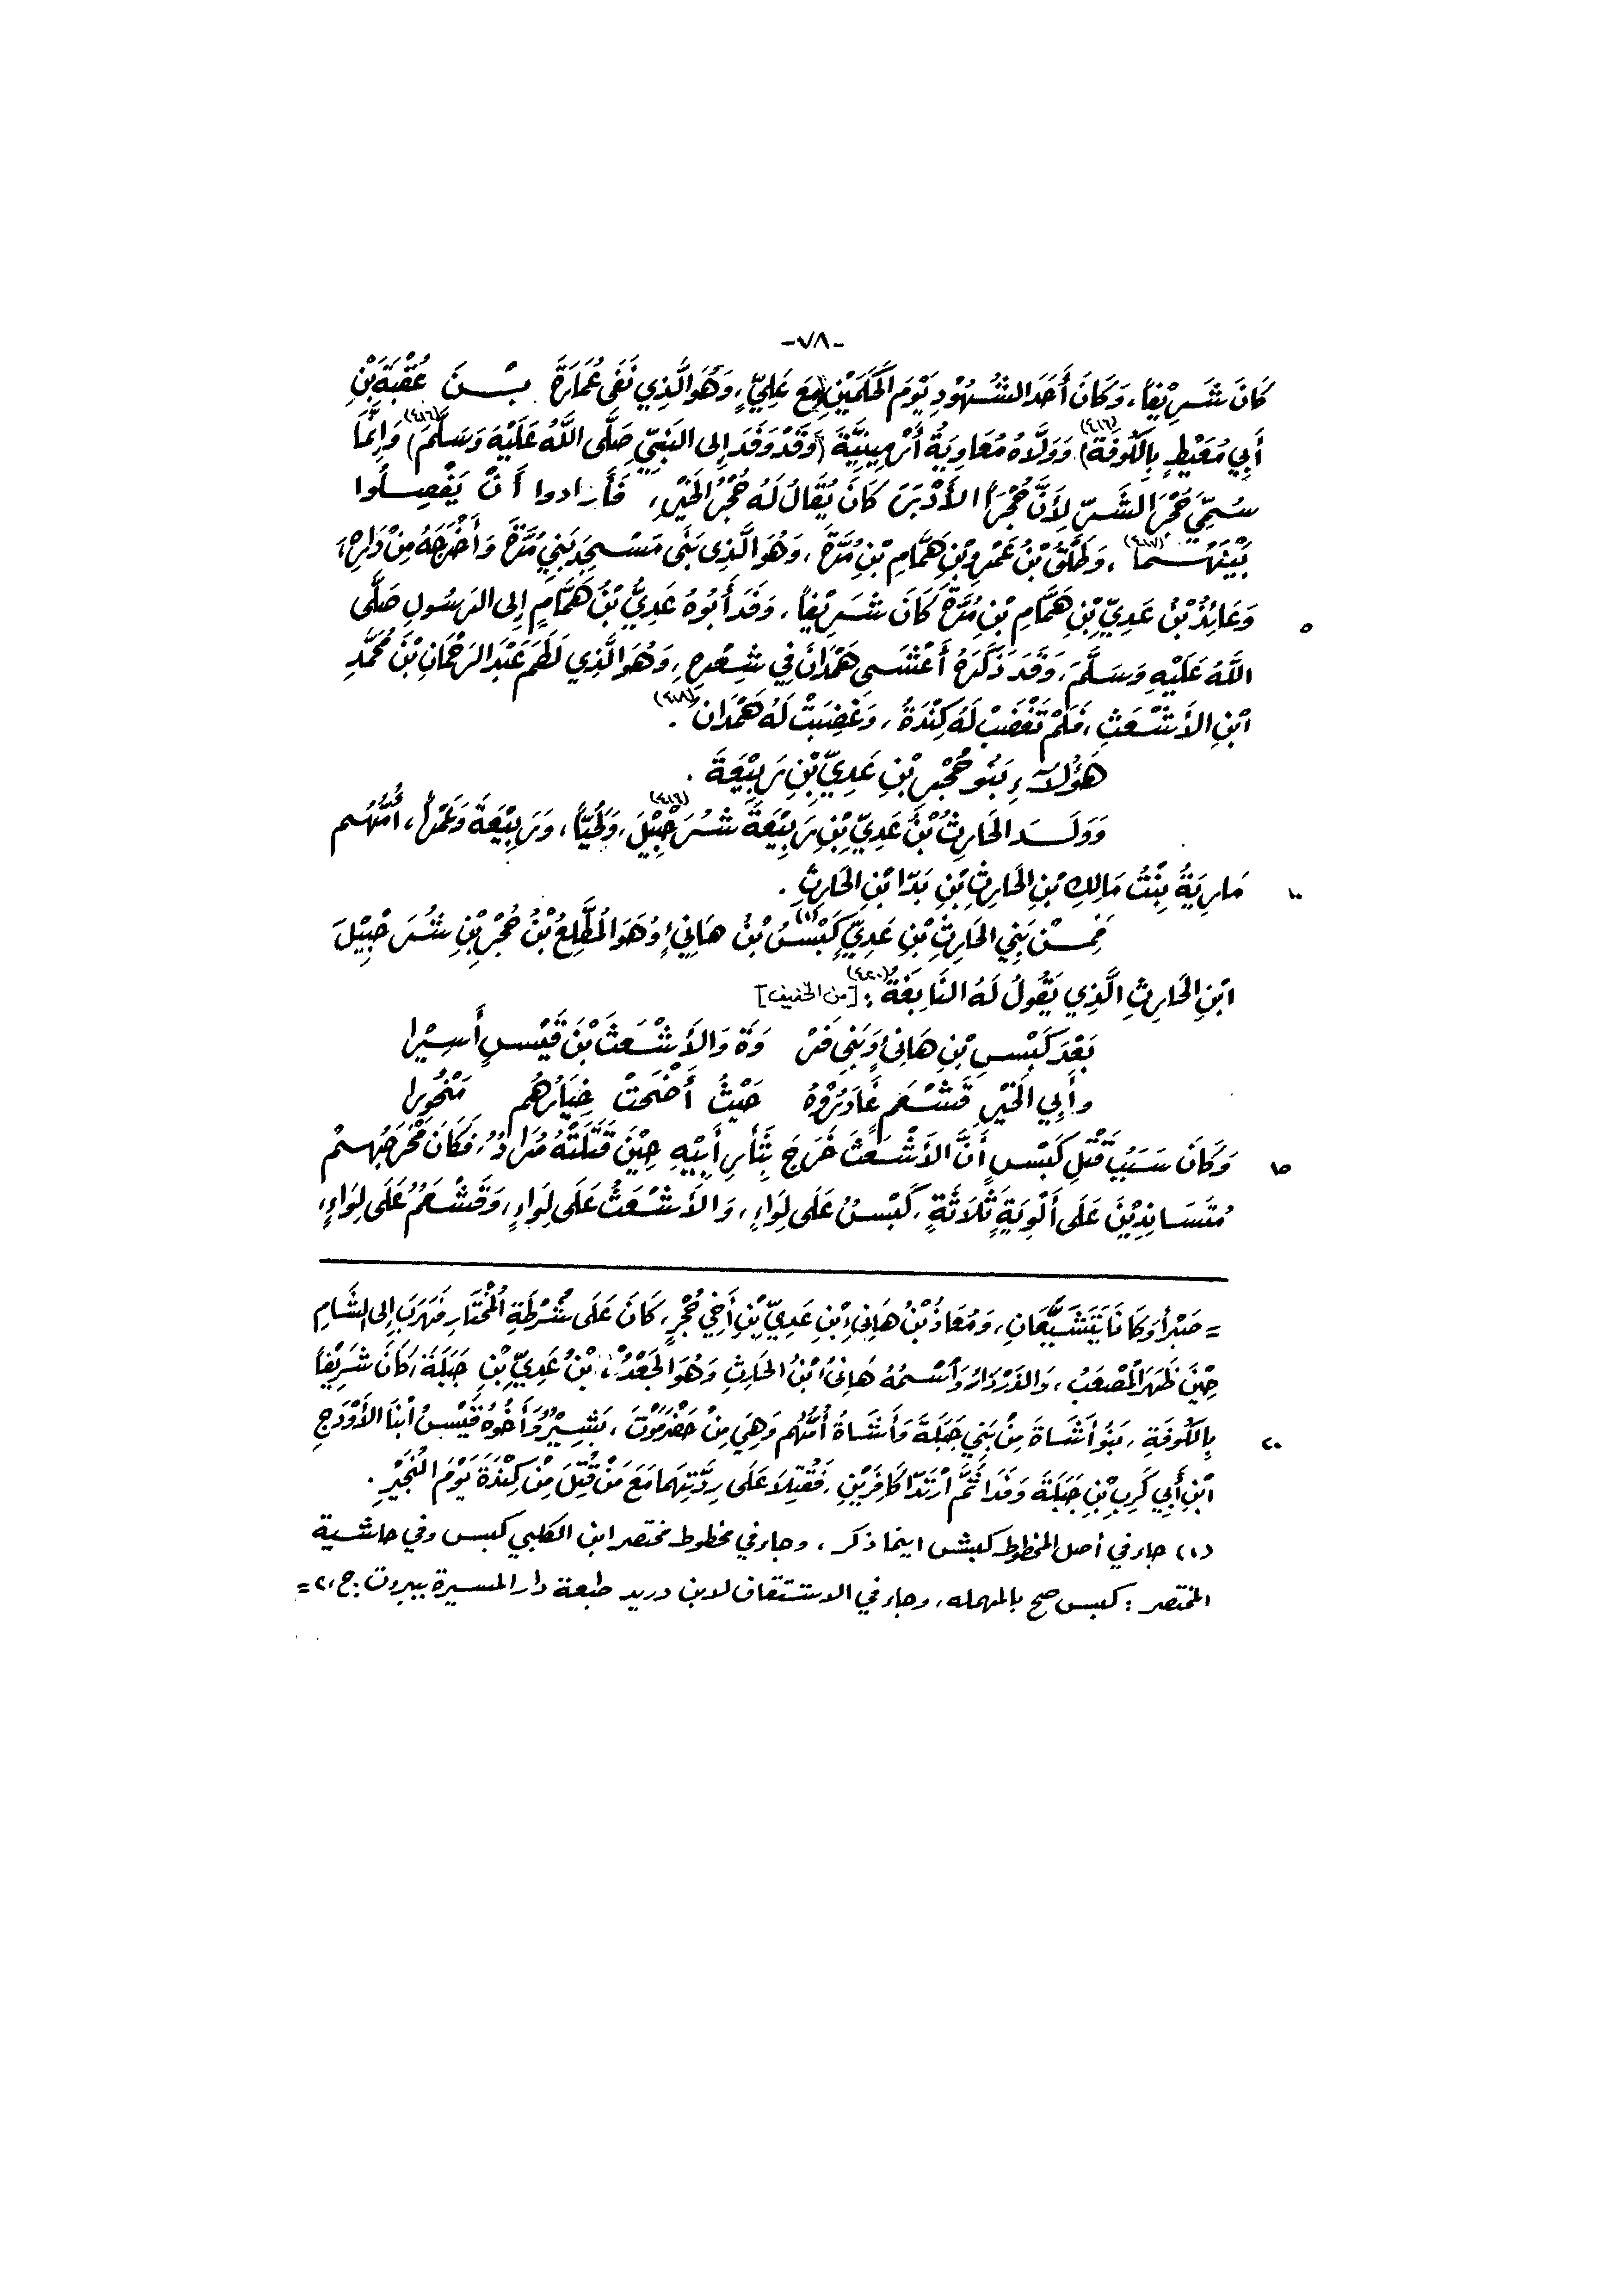 -٧٨-
كَانَ شَرِيْفاً، وَكَانَ أَحَدَ الشُّهُوْدِ يَوْمَ الحَكَمَيْنِ مَعَ عَلِيٍّ، وَهُوَ الَّذِي نَفَى عُمَارَةَ بْنَ عُقْبَةَ بْنِ
أَبِي مُعَيْطٍ بِالكُوفَةِ، وَوَلَّاهُ مُعَاوِيَةُ أَرْمِينِيَّةَ (وَقَدْ وَفَدَ إِلى النَبِيِّ صَلَّى اللَّهُ عَلَيْهِ وَسَلَّمَ) وَإِنَّمَا
سُمِّيَ حُجْرَ الشَّرِّ لِأَنَّ حُجْرَاً الأَدْبَرَ كَانَ يُقَالُ لَهُ حُجْرُ الخَيْرِ، فَأَرادوا أَنْ يَفْصِلُوا
بَيْنَهُمَا (٤١٧)، وَطَلْقُ بْنُ عَمْرِو بْنِ هَمَّامِ بْنِ مُرَّةَ، وَهُوَ الَّذِى بَنَى مَسْجِدَ بَنِي مُرَّةَ وَأَخْرَجَهُ مِنْ دَارِهِ،
وَعَائِذُ بْنُ عَدِيِّ بْنِ هَمَّامِ بْنِ مُرَّةَ كَانَ شَرِيْفاً، وَفَدَ أَبُوهُ عَدِيُّ بْنُ هَمَّامٍ إِلى الرَسُولِ صَلَّى
٥
اللَّهُ عَلَيْهِ وَسَلَّمَ، وَقَد ذَكَرَهُ أَعْشَى هَمْدَانَ فِي شِعْرِهِ، وَهُوَ الَّذِي لَطَمَ عَبْدَ الرَحْمَانِ بْنَ مُحَمَّدِ
ابْنِ الأَشْعَثِ، فَلَمْ تَغْضَبْ لَهُ كِنْدَةُ، وَغَضِبَتْ لَهُ هَمْدَانُ (٤١٨).
هَؤُلَآءِ بَنُو حُجْرِ بْنِ عَدِيِّ بْنِ رَبِيْعَةَ.
وَوَلَدَ الحَارِثُ بْنُ عَدِيِّ بْنِ رَبِيْعَةَ شُرَحْبِيْلَ، وَلُحَيّاً، وَرَبِيْعَةَ وَعَمْراً، أُمُّهُم
مَارِيَةُ بِنْتُ مَالِكِ بْنِ الحَارِثِ بْنِ بَدَّا بْنِ الحَارِثِ.
١٠
فَمِنْ بَنِي الحَارِثِ بْنِ عَدِيٍّ كَبْسُ (١) بْنُ هَانِئٍ وَهُوَ المُطَّلِعُ بْنُ حُجْرِ بْنِ شُرَحْبِيْلَ
ابْنِ الحَارِثِ الَّذِي يَقُولُ لَهُ النَابِغَةُ (٤٢٠): [من الخفيف]
بَعْدَ كَبْسِ بْنِ هَانِئٍ وَبَنِي فَرْ وَةَ وَالأَشْعَثَ بْنَ قَيْسٍ أَسِيْرا
وأَبِي الخَيْرِ قَشْعَمٍ غَادَرُوْهُ حَيْثُ أَضْحَتْ خِيَارُهُم مَنْحُورا
وَكَانَ سَبَبُ قَتْلِ كَبْسٍ أَنَّ الأَشْعَثَ خَرَجَ يَثْأَرُ أَبِيْهِ حِيْنَ قَتَلَتْهُ مُرَادُ، فَكَانَ مُخْرَجُهُمْ
١٥
مُتَسَانِدِيْنَ عَلَى أَلْوِيَةٍ ثَلَاثَةٍ، كَبْسُ عَلَى لِوَاءٍ، وَالأَشْعَثُ عَلَى لِوَاءٍ، وَقَشْعَمُ عَلَى لِوَاءٍ،
= صَبْراً وَكَانَا يَتَشَيَّعَانِ، وَمُعَاذُ بْنُ هَانِئِ بْنِ عَدِيِّ بْنِ أَخِي حُجْرٍ، كَانَ عَلَى شُرْطَةِ المُخْتَارِ فَهَرَبَ إِلى الشَّامِ
حِيْنَ ظَهَرَ المُصْعَبُ، وَاسْمُهُ هَانِئُ بْنُ الحَارِثِ وَهُوَ الجَعْدُ بْنُ عَدِيِّ بْنِ جَبَلَةَ، كَانَ شَرِيْفاً
بِالكُوفَةِ، بَنُو أَشَاةَ مِنْ بَنِي جَبَلَةَ وَأَشَاةُ أُمُّهُم وَهِيَ مِنْ حَضْرَمَوْتَ، بَشِيْرُ وَأَخُوْهُ قَيْسُ ابْنَا الأَوْدَجِ
٢٠
ابْنِ أَبِي كَرِبِ بْنِ جَبَلَةَ وَفَدَا ثُمَّ ارْتَدَّا كَافِرَيْنِ، فَقُتِلَا عَلَى رِدَّتِهِمَا مَعَ مَنْ قُتِلَ مِنْ كِنْدَةَ يَوْمَ النُجَيْرِ.
(١) جاء في أصل المخطوط كبش اينما ذكر، وجاء في مخطوط مختصر ابن الكلبي كبس وفي حاشية
المختصر: كبس صح بالمهمله، وجاء في الاشتقاق لابن دريد طبعة دار المسيرة بيروت. ج،٢ =